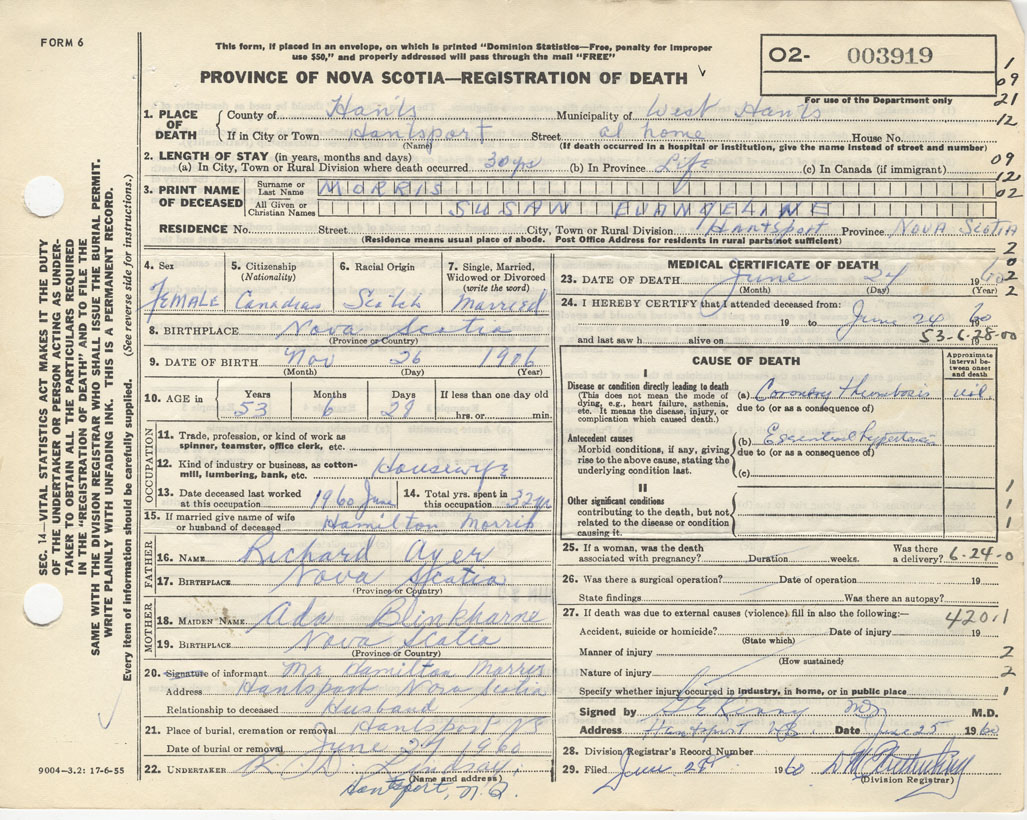 FORM 6
This form, if placed in an envelope, on which is printed "Dominion Statistics—Free, penalty for improper
use $50," and properly addressed will pass through the mail "FREE"
PROVINCE OF NOVA SCOTIA—REGISTRATION OF DEATH
02- 003919
For use of the Department only
1
09
21
12
1. PLACE OF DEATH
County of Hants Municipality of West Hants
If in City or Town Hantsport Street at home House No.
(Name) (If death occurred in a hospital or institution, give the name instead of street and number)
2. LENGTH OF STAY (in years, months and days)
(a) In City, Town or Rural Division where death occurred 30 yrs (b) In Province Life (c) In Canada (if immigrant)
09
12
02
3. PRINT NAME OF DECEASED
Surname or Last Name MORRIS
All Given or Christian Names SUSAN EVANGELINE
RESIDENCE No. Street City, Town or Rural Division Hantsport Province NOVA SCOTIA
(Residence means usual place of abode. Post Office Address for residents in rural parts not sufficient)
2
0
2
2
4. Sex FEMALE
5. Citizenship (Nationality) Canadian
6. Racial Origin Scotch
7. Single, Married, Widowed or Divorced (write the word) Married
8. BIRTHPLACE Nova Scotia
(Province or Country)
9. DATE OF BIRTH Nov 26 1906
(Month) (Day) (Year)
10. AGE in Years 53 Months 6 Days 29 If less than one day old
hrs. or min.
OCCUPATION
11. Trade, profession, or kind of work as
spinner, teamster, office clerk, etc.
12. Kind of industry or business, as cotton-
mill, lumbering, bank, etc. Housewife
13. Date deceased last worked
at this occupation 1960 June
14. Total yrs. spent in
this occupation 32 yrs
15. If married give name of wife
or husband of deceased Hamilton Morris
FATHER
16. NAME Richard Ayer
17. BIRTHPLACE Nova Scotia
(Province or Country)
MOTHER
18. MAIDEN NAME Ada Blinkharne
19. BIRTHPLACE Nova Scotia
(Province or Country)
20. Signature of informant Mr Hamilton Morris
Address Hantsport Nova Scotia
Relationship to deceased Husband
21. Place of burial, cremation or removal Hantsport NS
Date of burial or removal June 27 1960
22. UNDERTAKER R. D. Lindsay,
(Name and address)
Hantsport, N.S.
MEDICAL CERTIFICATE OF DEATH
23. DATE OF DEATH June 24 1960
(Month) (Day) (Year)
24. I HEREBY CERTIFY that I attended deceased from:
19 to June 24 60
and last saw h alive on 19
53-6-28-00
CAUSE OF DEATH
Approximate interval between onset and death
I
Disease or condition directly leading to death
(This does not mean the mode of
dying, e.g., heart failure, asthenia,
etc. It means the disease, injury, or
complication which caused death.)
(a) Coronary thrombosis
due to (or as a consequence of)
Antecedent causes
Morbid conditions, if any, giving
rise to the above cause, stating the
underlying condition last.
(b) Essential hypertension
due to (or as a consequence of)
(c)
II
Other significant conditions
contributing to the death, but not
related to the disease or condition
causing it.
1
1
1
25. If a woman, was the death
associated with pregnancy? Duration weeks. Was there
a delivery? 6-24-0
26. Was there a surgical operation? Date of operation 19
State findings Was there an autopsy?
27. If death was due to external causes (violence) fill in also the following:—
420.1
Accident, suicide or homicide? Date of injury 19
(State which)
Manner of injury 2
(How sustained)
Nature of injury 2
Specify whether injury occurred in industry, in home, or in public place 1
Signed by M.D.
Address Hantsport N.S. Date June 25 1960
28. Division Registrar's Record Number
29. Filed June 28th 1960
(Division Registrar)
SEC. 14—VITAL STATISTICS ACT MAKES IT THE DUTY
OF THE UNDERTAKER OR PERSON ACTING AS UNDER-
TAKER TO OBTAIN ALL THE PARTICULARS REQUIRED
IN THE "REGISTRATION OF DEATH" AND TO FILE THE
SAME WITH THE DIVISION REGISTRAR WHO SHALL ISSUE THE BURIAL PERMIT.
WRITE PLAINLY WITH UNFADING INK. THIS IS A PERMANENT RECORD.
Every item of information should be carefully supplied. (See reverse side for instructions.)
9004-3.2: 17-6-55